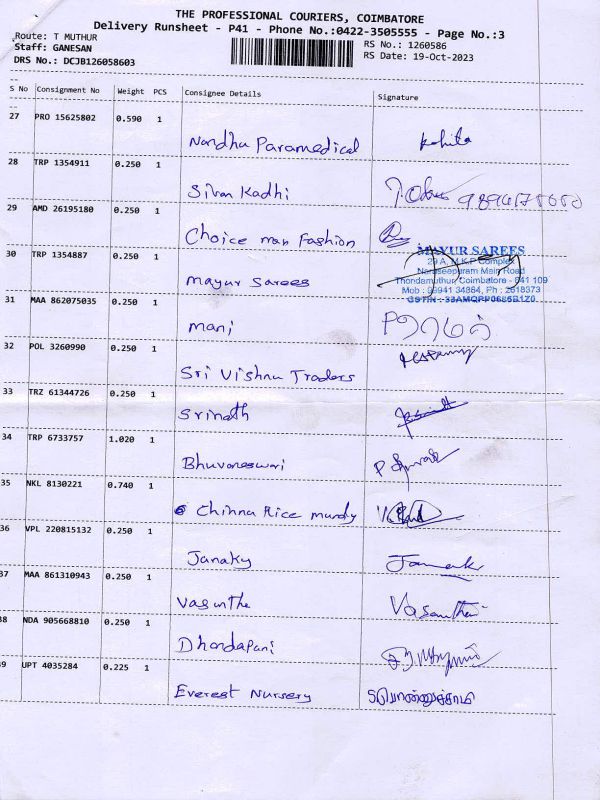 THE PROFESSIONAL COURIERS, COIMBATORE
Delivery Runsheet - P41 - Phone No.:0422-3505555 - Page No.:3
Route: T MUTHUR
Staff: GANESAN
DRS No.: DCJB126058603
RS No.: 1260586
RS Date: 19-Oct-2023
S No Consignment No Weight PCS Consignee Details Signature
27 PRO 15625802 0.590 1
Nandhu Paramedical
28 TRP 1354911 0.250 1
Sivan Kadhi
29 AMD 26195180 0.250 1
Choice man Fashion
30 TRP 1354887 0.250 1
Mayur Sarees
MAYUR SAREES
29 A, M.K.P Complex
Naraseepuram Main Road
Thondamuthur, Coimbatore - 641 109
Mob : 99941 34884, Ph : 2618373
31 MAA 862075035 0.250 1
mani
32 POL 3260990 0.250 1
Sri Vishnu Traders
33 TRZ 61344726 0.250 1
Srinath
34 TRP 6733757 1.020 1
Bhuvaneswari
35 NKL 8130221 0.740 1
Chinna Rice mundy
36 VPL 220815132 0.250 1
Janaky
37 MAA 861310943 0.250 1
Vasantha Vasantha
38 NDA 905668810 0.250 1
Dhandapani
39 UPT 4035284 0.225 1
Everest Nursery